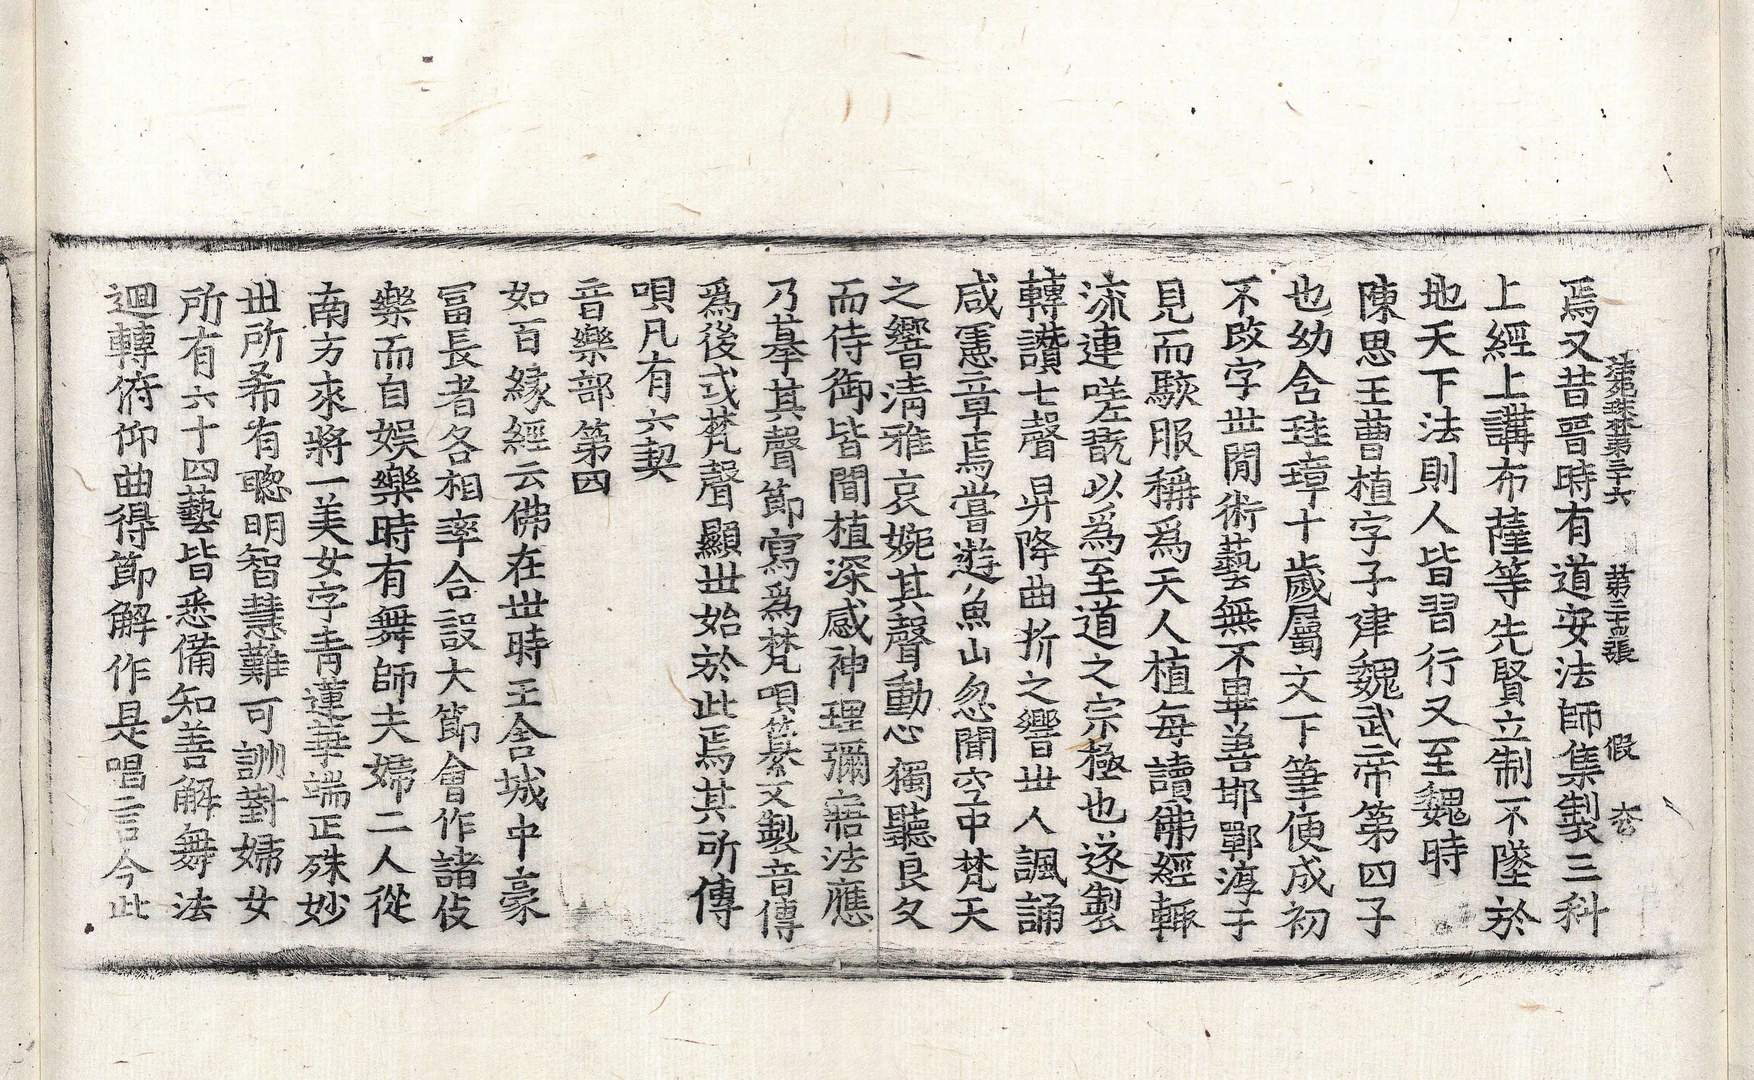 法苑珠林第三十六 第二十四張 假
焉又昔晉時有道安法師集製三科
上經上講布薩等先賢立制不墜於
地天下法則人皆習行又至魏時
陳思王曹植字子建魏武帝第四子
也幼含珪璋十歲屬文下筆便成初
不改字世閒術藝無不畢善邯鄲淳于
見而駭服稱爲天人植每讀佛經輙
流連嗟翫以爲至道之宗極也遂製
轉讚七聲昇降曲折之響世人諷誦
咸憲章焉嘗遊魚山忽聞空中梵天
之響清雅哀婉其聲動心獨聽良久
而侍御皆聞植深感神理彌寤法應
乃摹其聲節寫爲梵唄纂文製音傳
爲後式梵聲顯世始於此焉其所傳
唄凡有六契
音樂部第四
如百緣經云佛在世時王舍城中豪
冨長者各相率合設大節會作諸伎
樂而自娛樂時有舞師夫婦二人從
南方來將一美女字青蓮華端正殊妙
世所希有聦明智慧難可詶對婦女
所有六十四藝皆悉備知善解舞法
迴轉俯仰曲得節解作是唱言今此